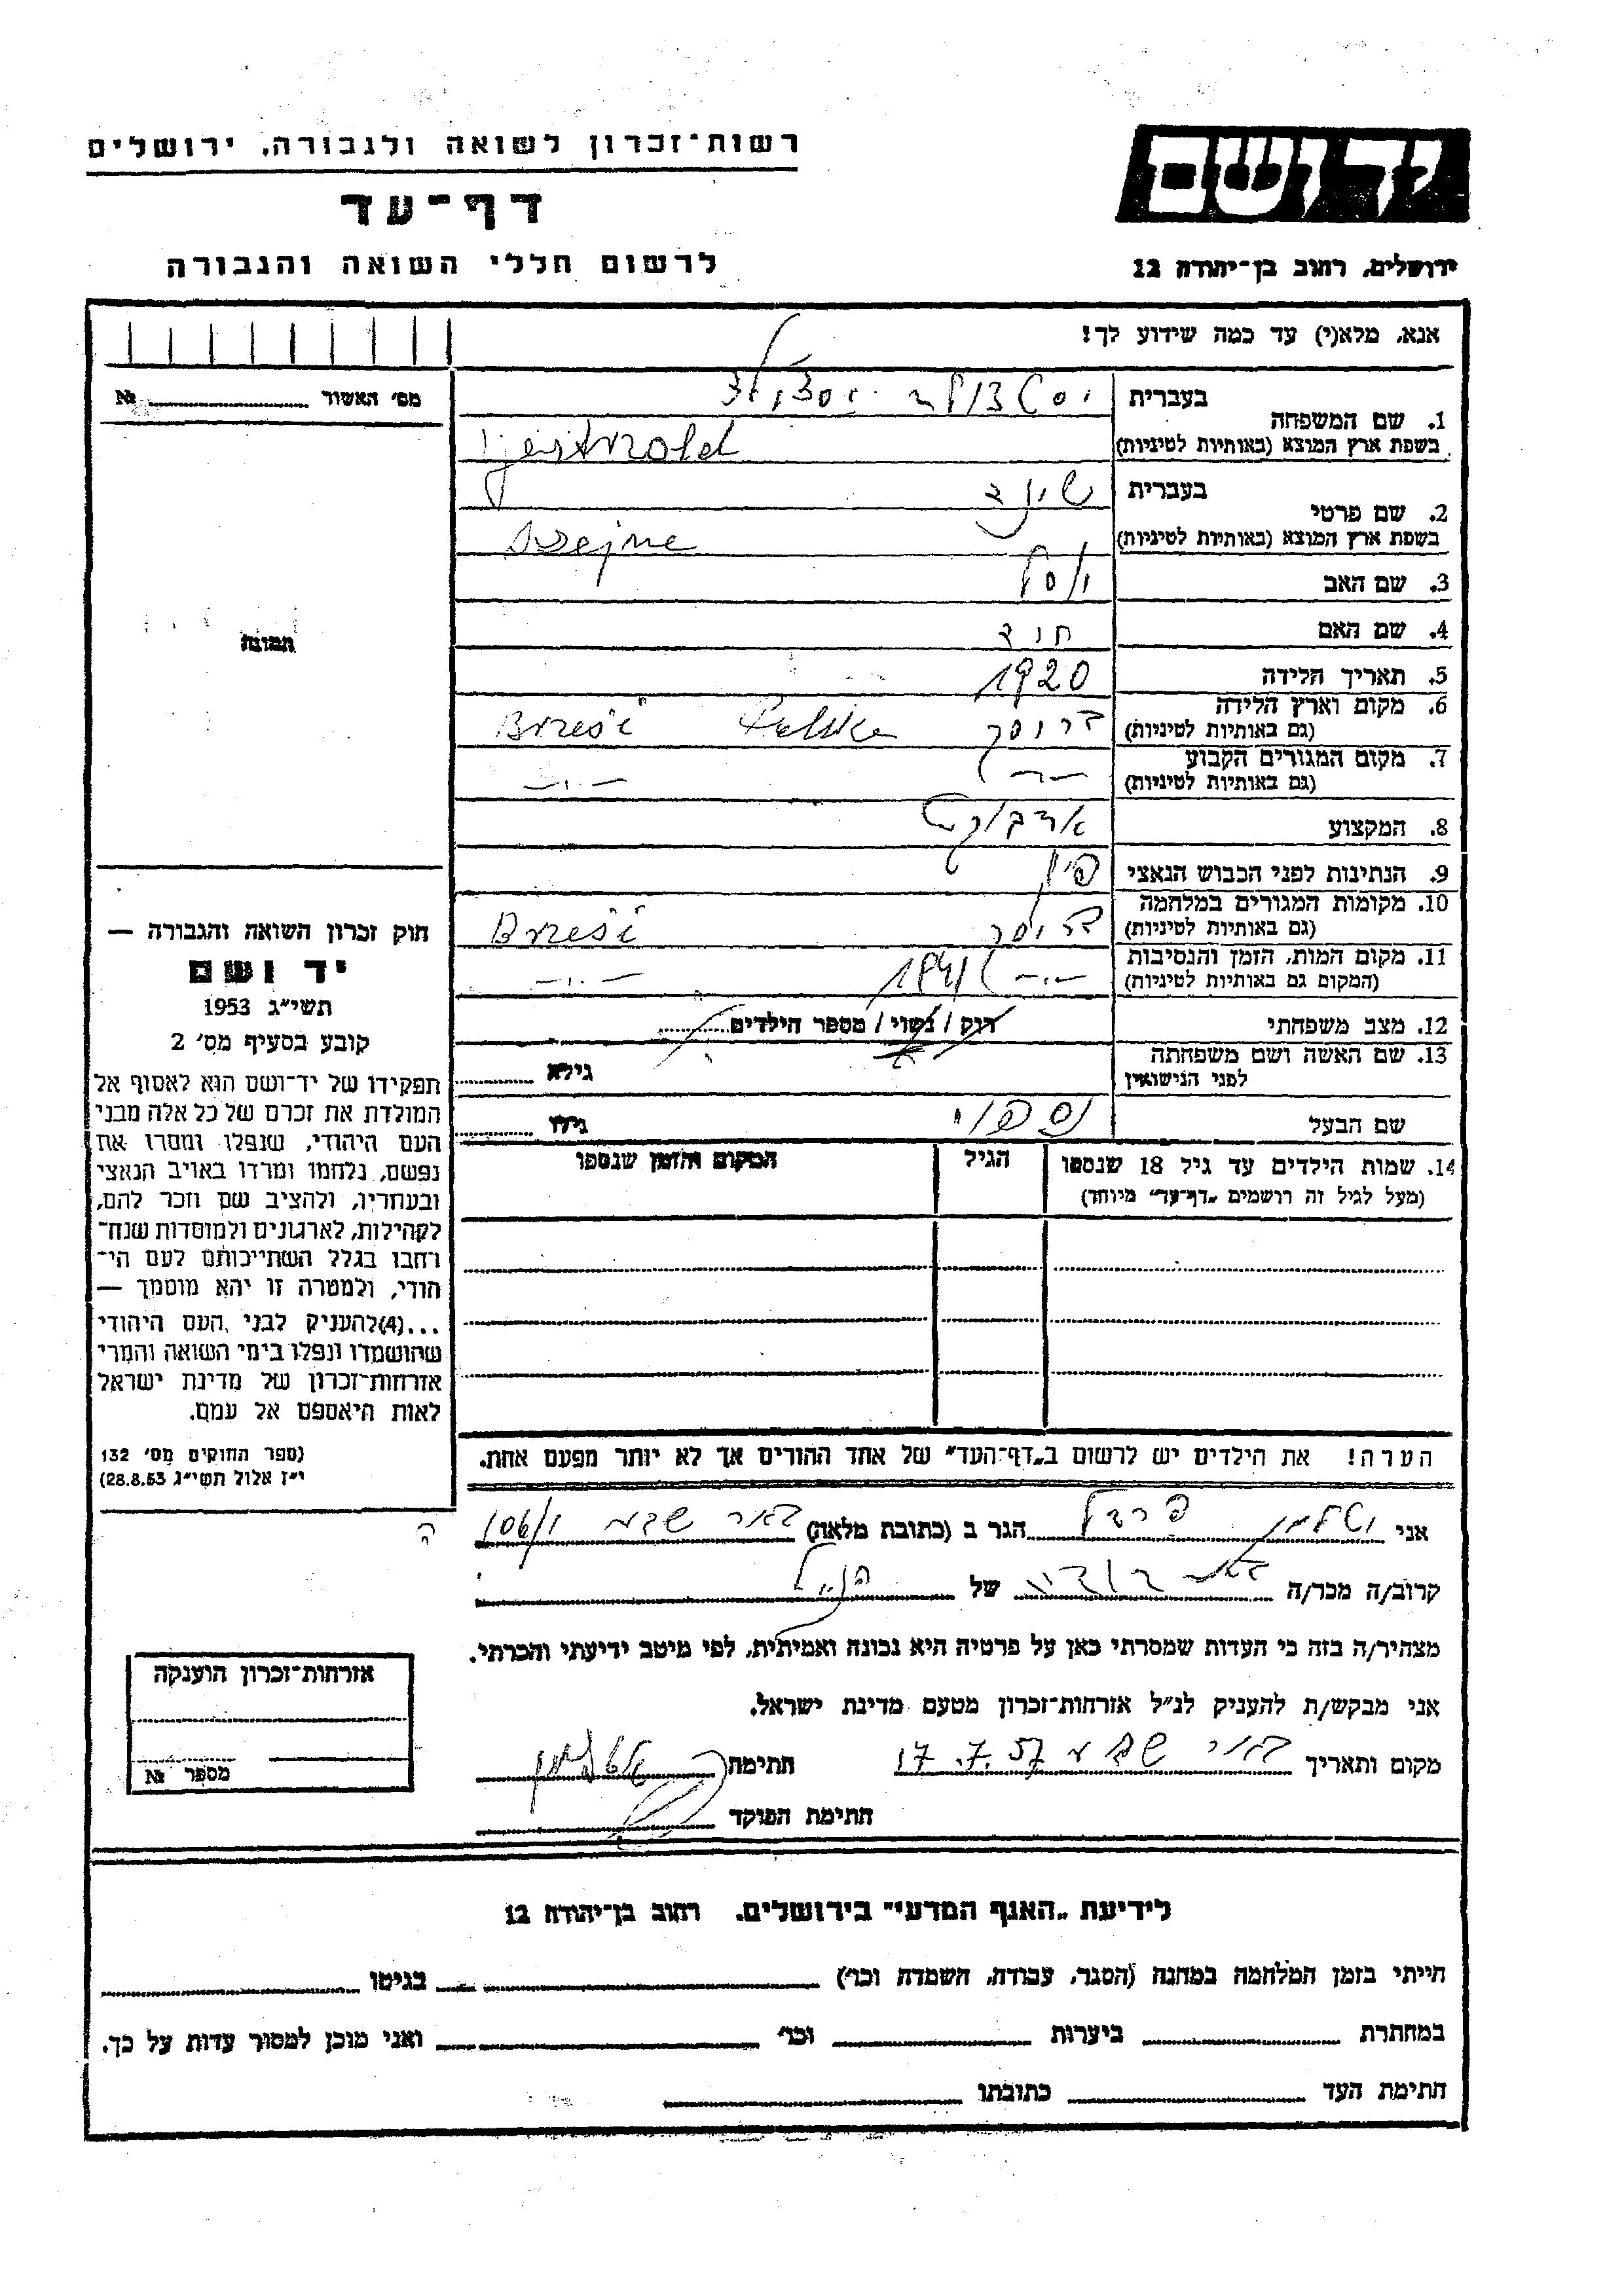 רשות־זכרון לשואה ולגבורה, ירושלים
דף־עד
לרשום חללי השואה והגבורה
יד ושם
ירושלים, רחוב בן־יהודה 12
אנא, מלא(י) עד כמה שידוע לך!
מס' האשור № 
1. שם המשפחה
בעברית
בשפת ארץ המוצא (באותיות לטיניות)
2. שם פרטי
בעברית
בשפת ארץ המוצא (באותיות לטיניות) Szejne
3. שם האב
4. שם האם
5. תאריך הלידה 1920
6. מקום וארץ הלידה
(גם באותיות לטיניות) Polska Brześć
7. מקום המגורים הקבוע
(גם באותיות לטיניות) —..—
8. המקצוע
9. הנתינות לפני הכבוש הנאצי
10. מקומות המגורים במלחמה
(גם באותיות לטיניות) Brześć
11. מקום המות, הזמן והנסיבות
(המקום גם באותיות לטיניות) —..— 1941 —..—
12. מצב משפחתי רוק / נשוי / מספר הילדים
13. שם האשה ושם משפחתה
לפני הנישואין גילא
שם הבעל גילו
14. שמות הילדים עד גיל 18 שנספו
(מעל לגיל זה רושמים „דף־עד" מיוחד)
הגיל
המקום והזמן שנספו
תמונה
חוק זכרון השואה והגבורה —
יד ושם
תשי"ג 1953
קובע בסעיף מס' 2
תפקידו של יד־ושם הוא לאסוף אל
המולדת את זכרם של כל אלה מבני
העם היהודי, שנפלו ומסרו את
נפשם, נלחמו ומרדו באויב הנאצי
ובעוזריו, ולהציב שם וזכר להם,
לקהילות, לארגונים ולמוסדות שנח־
רבו בגלל השתייכותם לעם הי־
הודי, ולמטרה זו יהא מוסמך —
...(4) להעניק לבני העם היהודי
שהושמדו ונפלו בימי השואה והמרי
אזרחות־זכרון של מדינת ישראל
לאות היאספם אל עמם.
(ספר החוקים מס' 132
י"ז אלול תשי"ג 28.8.53)
הערה! את הילדים יש לרשום ב„דף־העד" של אחד ההורים אך לא יותר מפעם אחת.
אני הגר ב (כתובת מלאה) באר שבע
קרוב/ה מכר/ה של
מצהיר/ה בזה כי העדות שמסרתי כאן על פרטיה היא נכונה ואמיתית, לפי מיטב ידיעתי והכרתי.
אני מבקש/ת להעניק לנ"ל אזרחות־זכרון מטעם מדינת ישראל.
מקום ותאריך באר שבע 17.7.57 חתימה
חתימת הפוקד
אזרחות־זכרון הוענקה
מספר №
לידיעת „האגף המדעי" בירושלים. רחוב בן־יהודה 12
הייתי בזמן המלחמה במחנה (הסגר, עבודה, השמדה וכו') בגיטו
במחתרת ביערות וכו' ואני מוכן למסור עדות על כך.
חתימת העד כתובתו